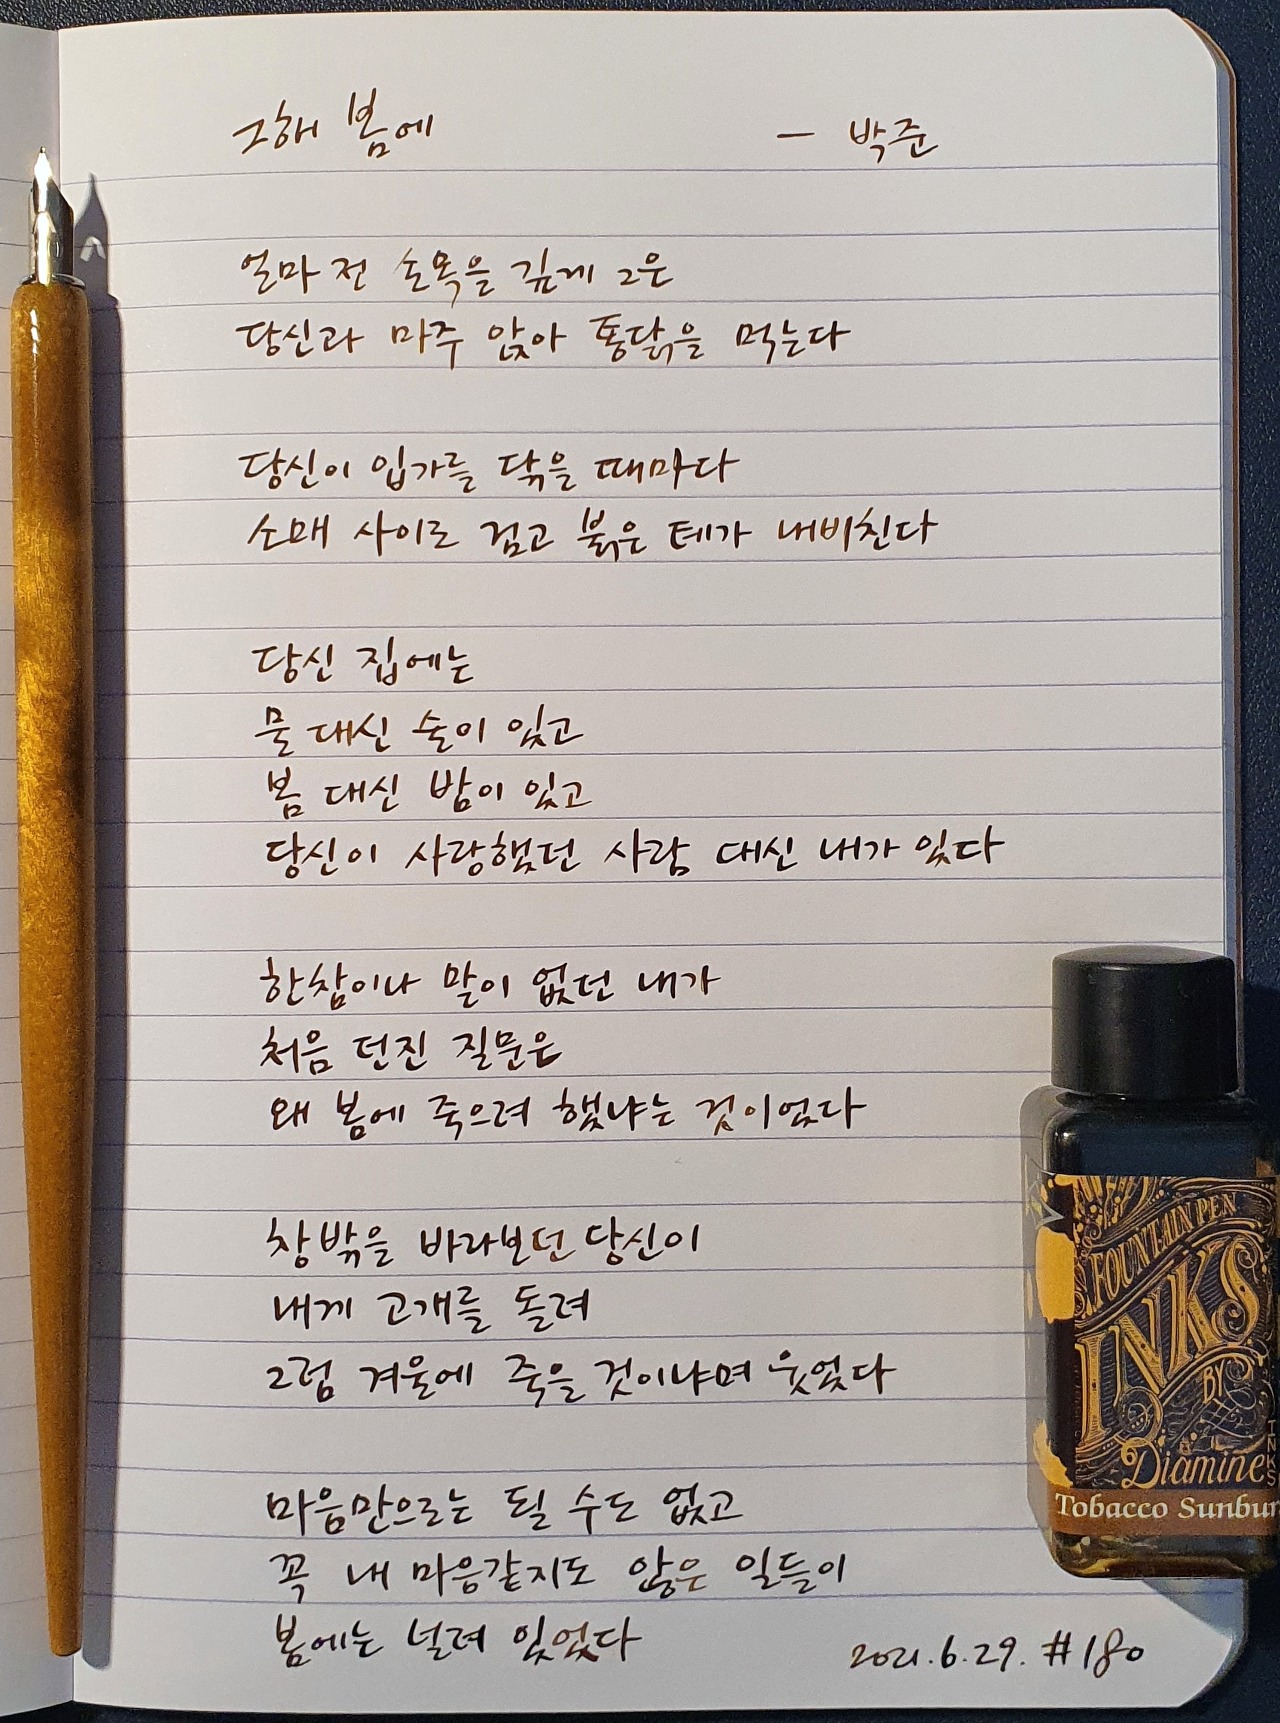 그해 봄에 - 박준
얼마 전 손목을 깊게 그은
당신과 마주 앉아 통닭을 먹는다
당신이 입가를 닦을 때마다
소매 사이로 검고 붉은 테가 내비친다
당신 집에는
물 대신 술이 있고
봄 대신 밤이 있고
당신이 사랑했던 사람 대신 내가 있다
한참이나 말이 없던 내가
처음 던진 질문은
왜 봄에 죽으려 했냐는 것이었다
창밖을 바라보던 당신이
내게 고개를 돌려
그럼 겨울에 죽을 것이냐며 웃었다
마음만으로는 될 수도 없고
꼭 내 마음같지도 않은 일들이
봄에는 널려 있었다
2021.6.29. #180
FOUNTAIN PEN
INKS
BY
Diamine
Tobacco Sunbur
INKS